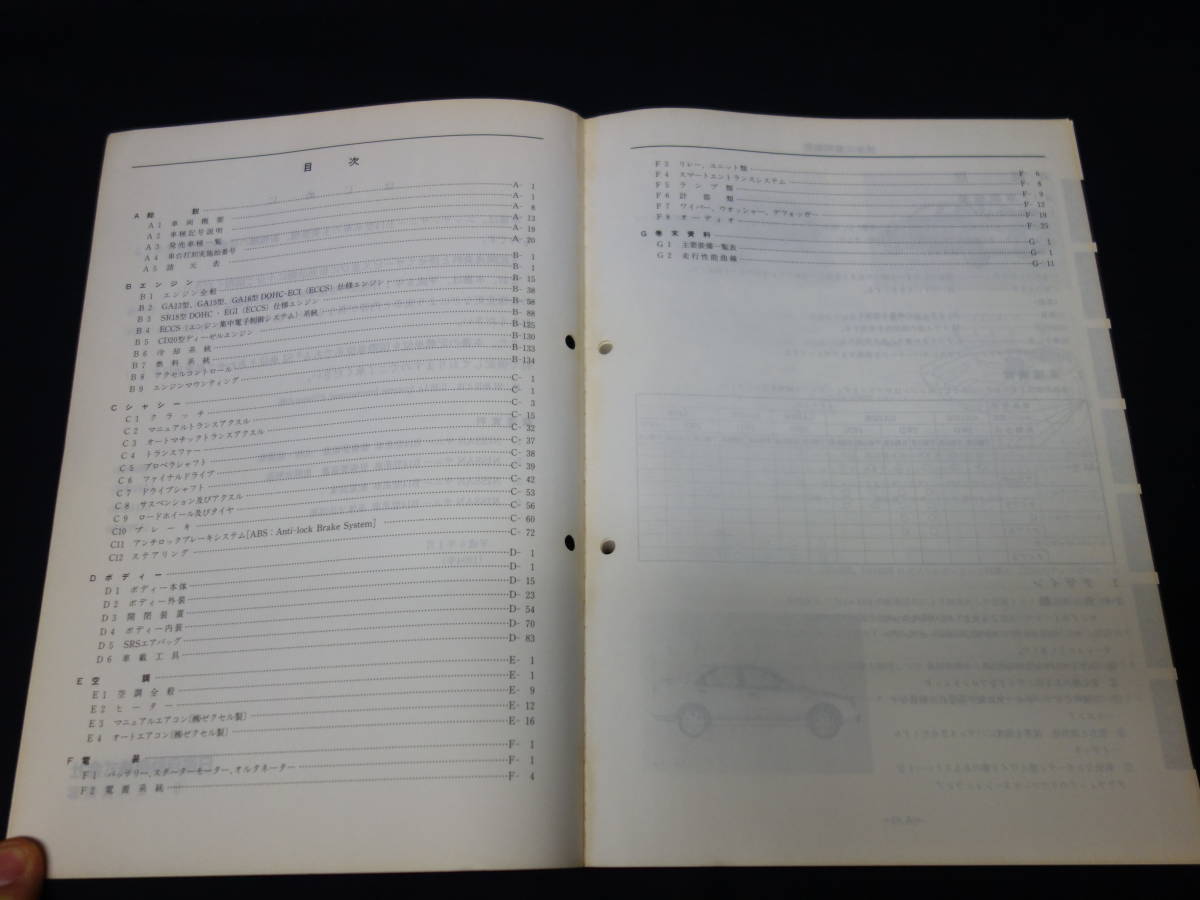 目 次
A 総 説 A- 1
A 1 車 両 概 要 A- 1
A 2 車種記号説明 A- 8
A 3 発売車種一覧 A- 13
A 4 車台打刻実施始番号 A- 19
A 5 諸 元 表 A- 20
B エンジン B- 1
B 1 エンジン全般 B- 1
B 2 GA13型、GA15型、GA16型 DOHC-ECI (ECCS) 仕様エンジン B- 15
B 3 SR18型 DOHC・EGI (ECCS) 仕様エンジン B- 38
B 4 ECCS (エンジン集中電子制御システム) 系統 B- 58
B 5 CD20型ディーゼルエンジン B- 88
B 6 冷 却 系 統 B-125
B 7 燃 料 系 統 B-130
B 8 アクセルコントロール B-133
B 9 エンジンマウンティング B-134
C シャシー C- 1
C 1 クラッチ C- 1
C 2 マニュアルトランスアクスル C- 3
C 3 オートマチックトランスアクスル C- 15
C 4 トランスファー C- 32
C 5 プロペラシャフト C- 37
C 6 ファイナルドライブ C- 38
C 7 ドライブシャフト C- 39
C 8 サスペンション及びアクスル C- 42
C 9 ロードホイール及びタイヤ C- 53
C10 ブレーキ C- 56
C11 アンチロックブレーキシステム[ABS : Anti-lock Brake System] C- 60
C12 ステアリング C- 72
D ボディー D- 1
D 1 ボディー本体 D- 1
D 2 ボディー外装 D- 15
D 3 開 閉 装 置 D- 23
D 4 ボディー内装 D- 54
D 5 SRSエアバッグ D- 70
D 6 車 載 工 具 D- 83
E 空 調 E- 1
E 1 空 調 全 般 E- 1
E 2 ヒーター E- 9
E 3 マニュアルエアコン[㈱ゼクセル製] E- 12
E 4 オートエアコン[㈱ゼクセル製] E- 16
F 電 装 F- 1
F 1 バッテリー、スターターモーター、オルタネーター F- 1
F 2 電 源 系 統 F- 4
F 3 リレー、ユニット類 F- 6
F 4 スマートエントランスシステム F- 8
F 5 ランプ類 F- 9
F 6 計 器 類 F- 12
F 7 ワイパー、ウオッシャー、デフォッガー F- 19
F 8 オーディオ F- 25
G 巻 末 資 料 G- 1
G 1 主要装備一覧表 G- 1
G 2 走行性能曲線 G- 11